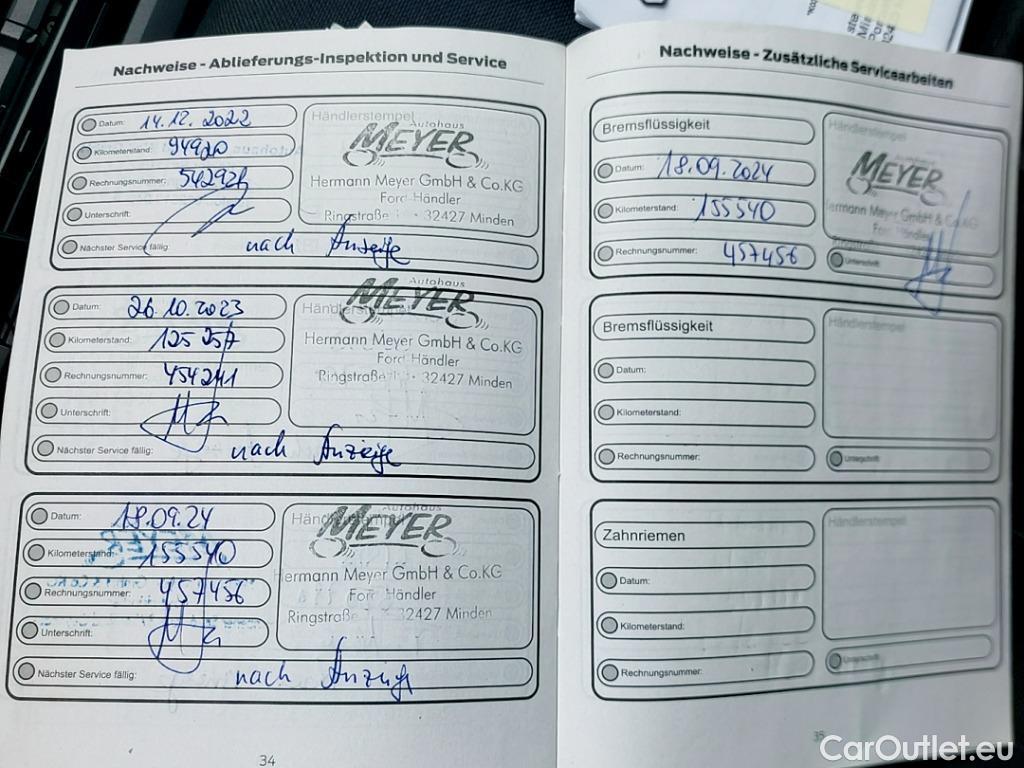 Nachweise - Ablieferungs-Inspektion und Service
Datum: 14.12.2022
Kilometerstand: 94920
Rechnungsnummer:
Unterschrift:
Nächster Service fällig: nach Anzeige
Händlerstempel
Autohaus
MEYER
Hermann Meyer GmbH & Co.KG
Ford Händler
Ringstraße 32427 Minden
Datum: 26.10.2023
Kilometerstand: 125 257
Rechnungsnummer: 454241
Unterschrift:
Nächster Service fällig: nach Anzeige
Händlerstempel
Autohaus
MEYER
Hermann Meyer GmbH & Co.KG
Ford Händler
Ringstraße 32427 Minden
Datum: 18.09.24
Kilometerstand: 155540
Rechnungsnummer: 457456
Unterschrift:
Nächster Service fällig: nach Anzeige
Händlerstempel
Autohaus
MEYER
Hermann Meyer GmbH & Co.KG
Ford Händler
Ringstraße 32427 Minden
34
Nachweise - Zusätzliche Servicearbeiten
Bremsflüssigkeit
Datum: 18.09.2024
Kilometerstand: 155540
Rechnungsnummer: 457456
Händlerstempel
Autohaus
MEYER
Hermann Meyer GmbH & Co.KG
Ford Händler
Unterschrift
Bremsflüssigkeit
Datum:
Kilometerstand:
Rechnungsnummer:
Händlerstempel
Unterschrift
Zahnriemen
Datum:
Kilometerstand:
Rechnungsnummer:
Händlerstempel
Unterschrift
35
CarOutlet.eu